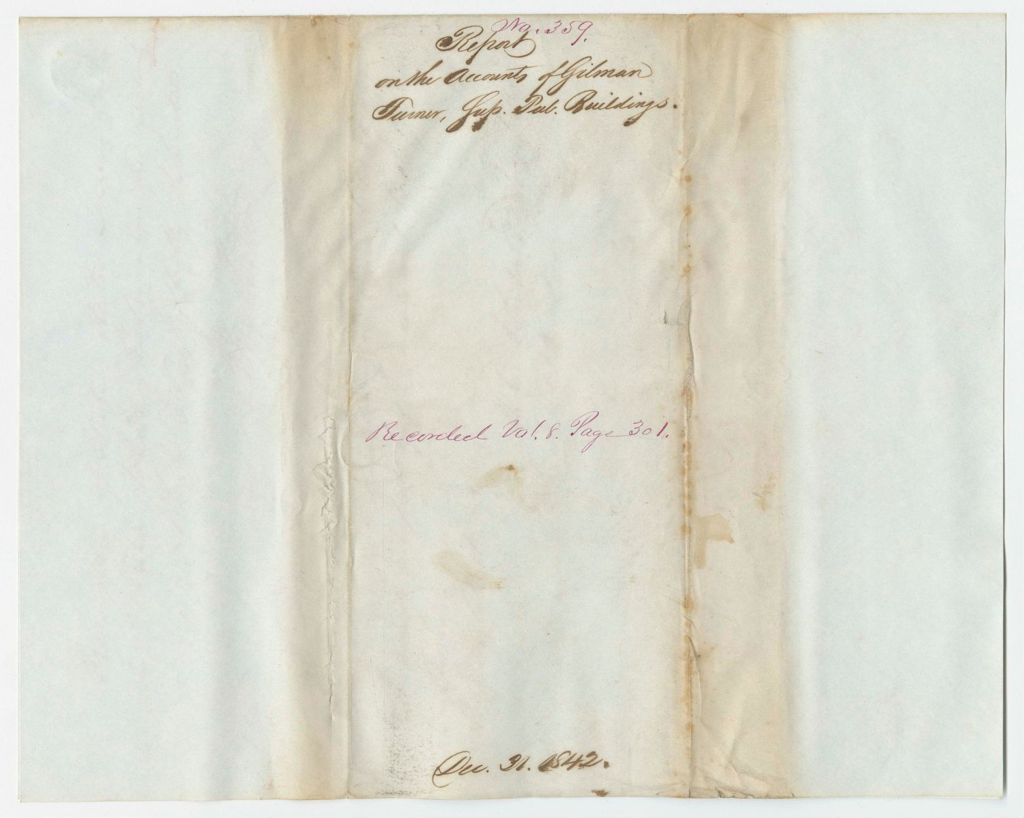 No. 359.
Report
on the Accounts of Gilman
Turner, Sup. Pub. Buildings.
Recorded Vol. 8. Page 301.
Dec. 31. 1842.